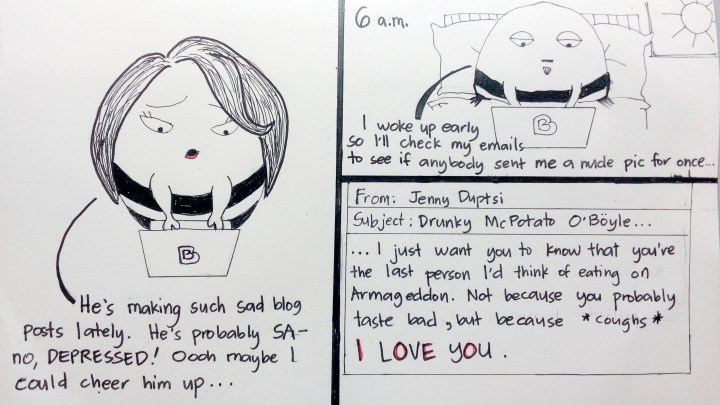 He's making such sad blog
posts lately. He's probably SA-
no, DEPRESSED! Oooh maybe I
could cheer him up...
6 a.m.
I woke up early
so I'll check my emails
to see if anybody sent me a nude pic for once...
From: Jenny Duptsi
Subject: Drunky McPotato O'Böyle...
... I just want you to know that you're
the last person I'd think of eating on
Armageddon. Not because you probably
taste bad, but because *coughs*
I LOVE YOU.
B
B